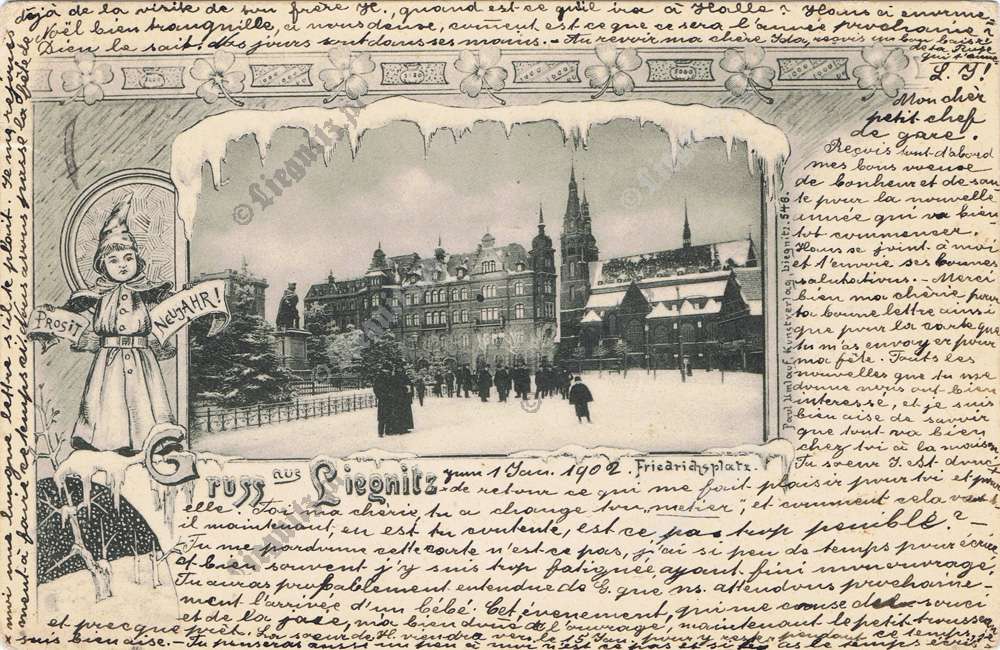 Mon chèr
petit chef
de gare.
Reçois tout-d'abord
mes bons voeux
de bonheur et de san-
té pour la nouvelle
année qui va bien-
tot commencer.
Hans se joint à moi
et t'envoie ses bonnes
salutations. - Merci
bien ma chérie pour
ta bonne lettre ainsi
que pour la carte que
tu m'as envoyér pour
ma fête. Toutes les
nouvelles que tu me
donne nous ont bien
interessé, et je suis
bien aise de savoir
que tout va bien
chez toi à la maison.
Ta soeur I. est donc
de retour ce qui me fait plaisir pour toi et pour
elle. Toi ma chérie, tu a changé ton "métier", et comment cela va
il maintenant, en est tu contente, est ce pas trop penible? -
Tu me pardonne cette carte n'est-ce pas, j'ai si peu de temps pour écrire
et bien souvent j'y suis trop fatiguée ayant fini mon ouvrage,
Tu auras probablement entendue de G. que ns. attendons prochaine-
ment l'arrivée d'un bébé. Cet évenement, qui me cause de souci
et de la joie, m'a bien donné de l'ouvrage, maintenant le petit trousseau
et presque prêt. La soeur de H. viendra vers le 15 Jan. pour y rester pendant ce temps, je
suis bien aise. - Tu penseras aussi un peu à moi n'est ce pas et si tu as le temps écris-
moi une longue lettre s'il te plait. Je me rejouis
déjà de la visite de son frère H., quand est-ce qu'il ira à Halle? Nous avons
Noël bien tranquille, à nous deux, comment est-ce que ce sera l'année prochaine?
Dieu le sait, les jours sont dans ses mains. - Au revoir ma chère Ida, reçois un bon baiser
de ta
qui t'aime
L. J!
PROSIT
NEUJAHR!
Gruss aus Liegnitz
zum 1 Jan. 1902.
Friedrichsplatz.
Paul Umlauf, Kunstverlag Liegnitz. 548.
© Liegnitz.pl